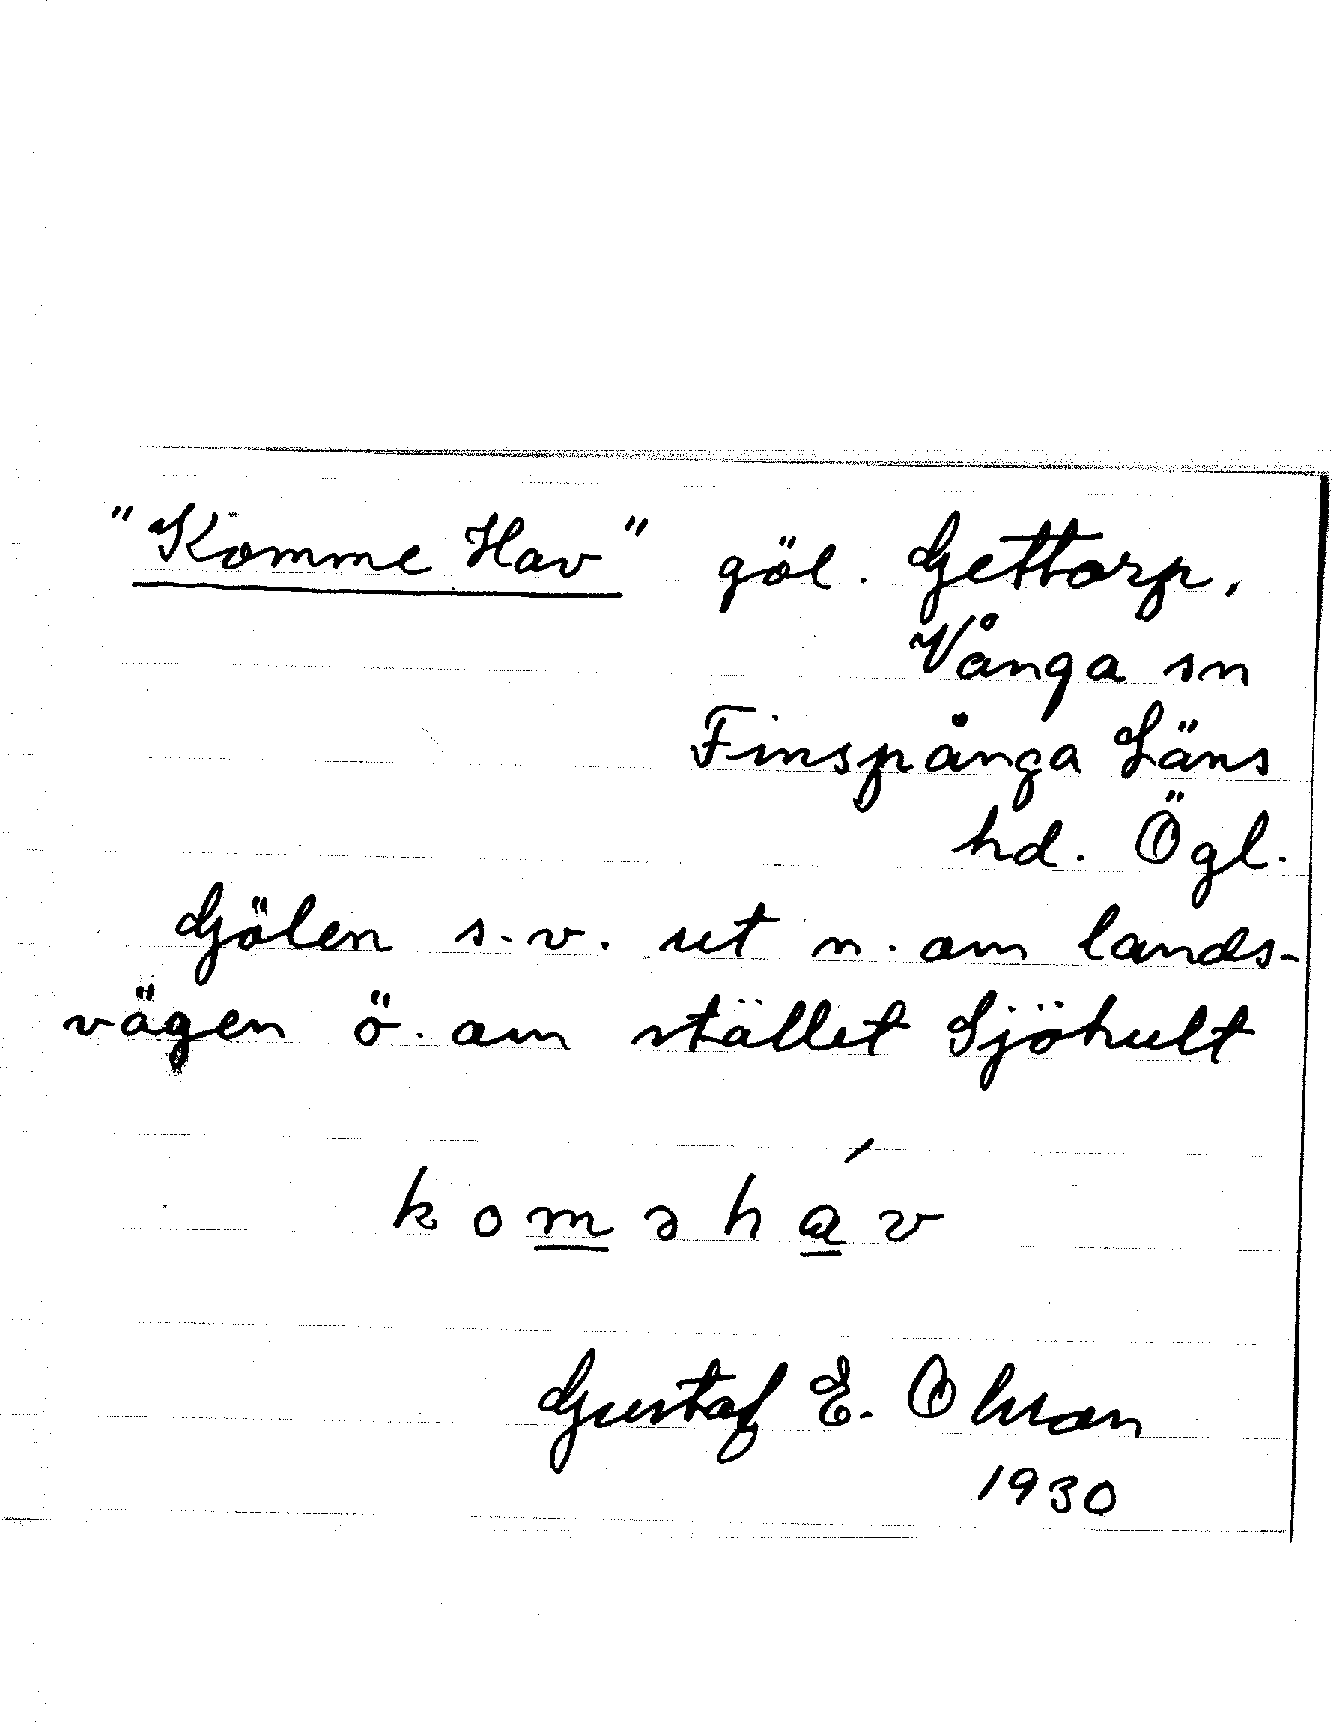 "Komme Hav" göl. Gettorp,
Vånga sn
Finspånga Läns
hd. Ögl.
Gölen s.v. ut n. om lands-
vägen ö. om stället Sjöhult
koməháv
Gustaf E. Olsson
1930